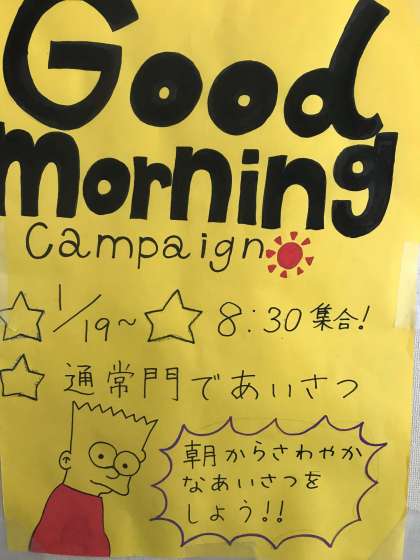 Good
morning
Campaign
1/19~ 8:30集合!
通常門であいさつ
朝からさわやか
なあいさつを
しよう!!